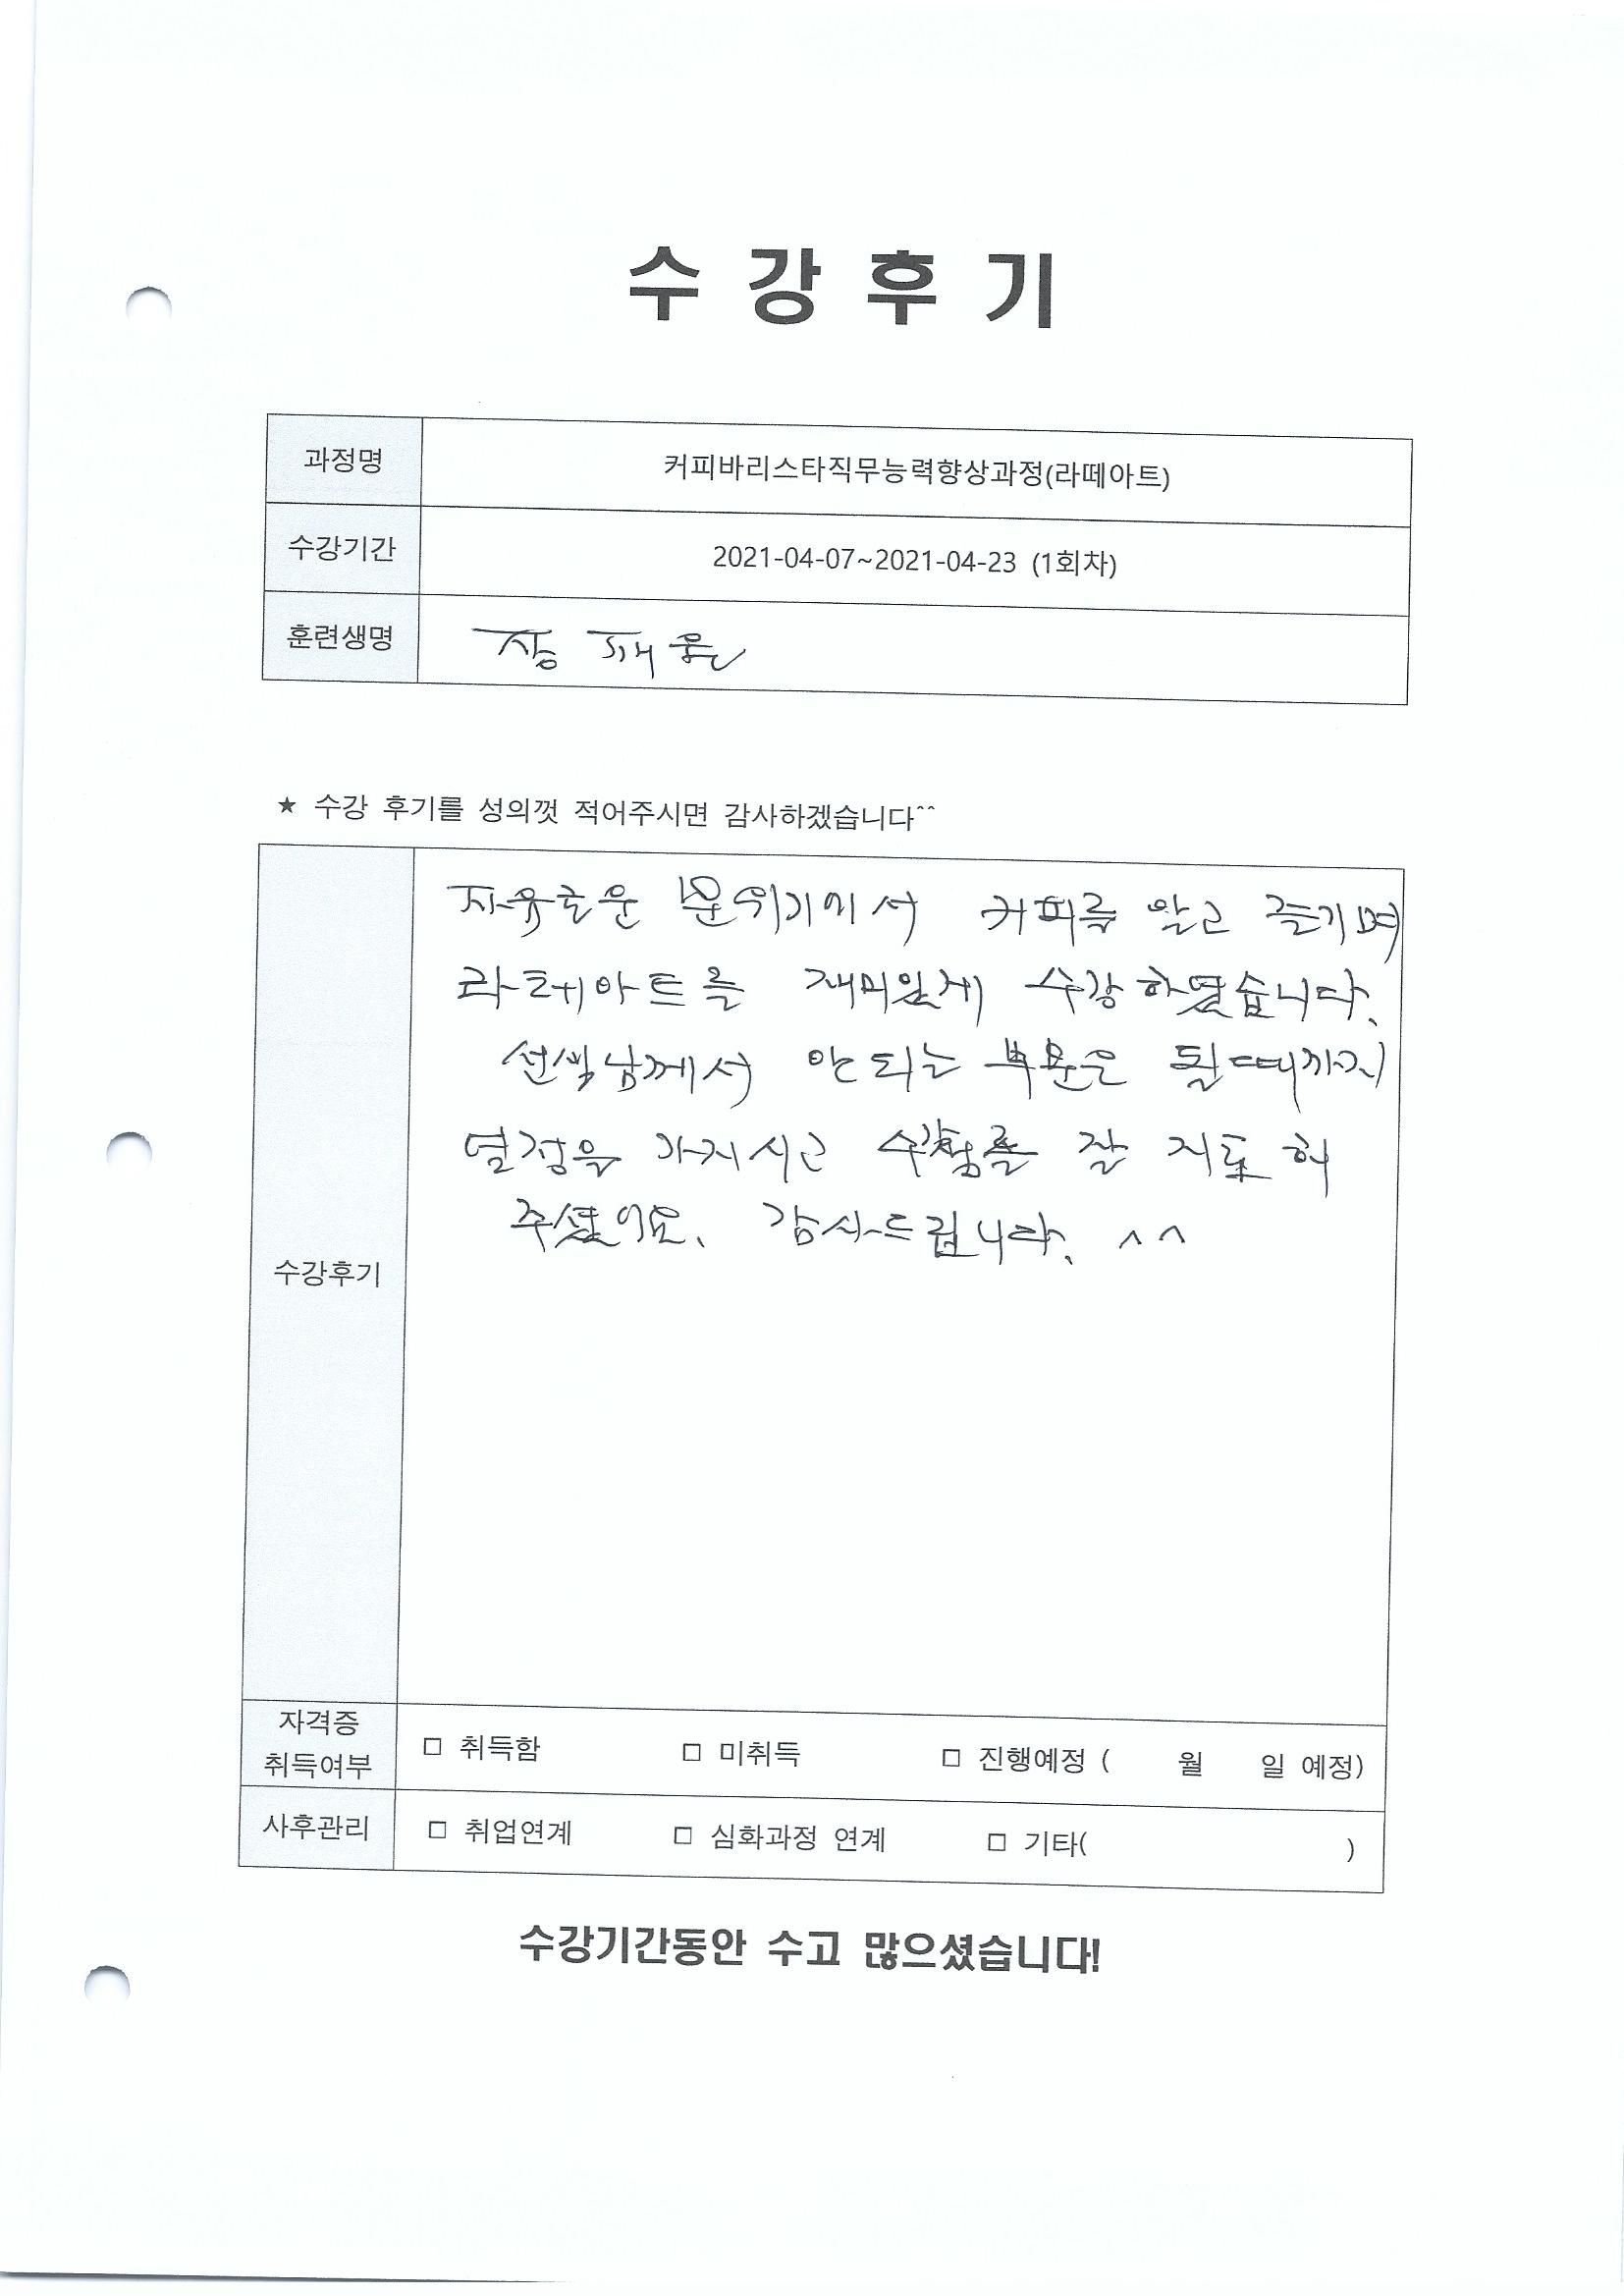 수 강 후 기
과정명 커피바리스타직무능력향상과정(라떼아트)
수강기간 2021-04-07~2021-04-23 (1회차)
훈련생명 장 재윤
★ 수강 후기를 성의껏 적어주시면 감사하겠습니다^^
자유로운 분위기에서 커피를 알고 즐기며
라테아트를 재미있게 수강하였습니다.
선생님께서 안되는 부분은 될때까지
열정을 가지시고 잘 지도 해
주셨어요. 감사드립니다. ^^
수강후기
자격증
취득여부 □ 취득함 □ 미취득 □ 진행예정 ( 월 일 예정)
사후관리 □ 취업연계 □ 심화과정 연계 □ 기타( )
수강기간동안 수고 많으셨습니다!